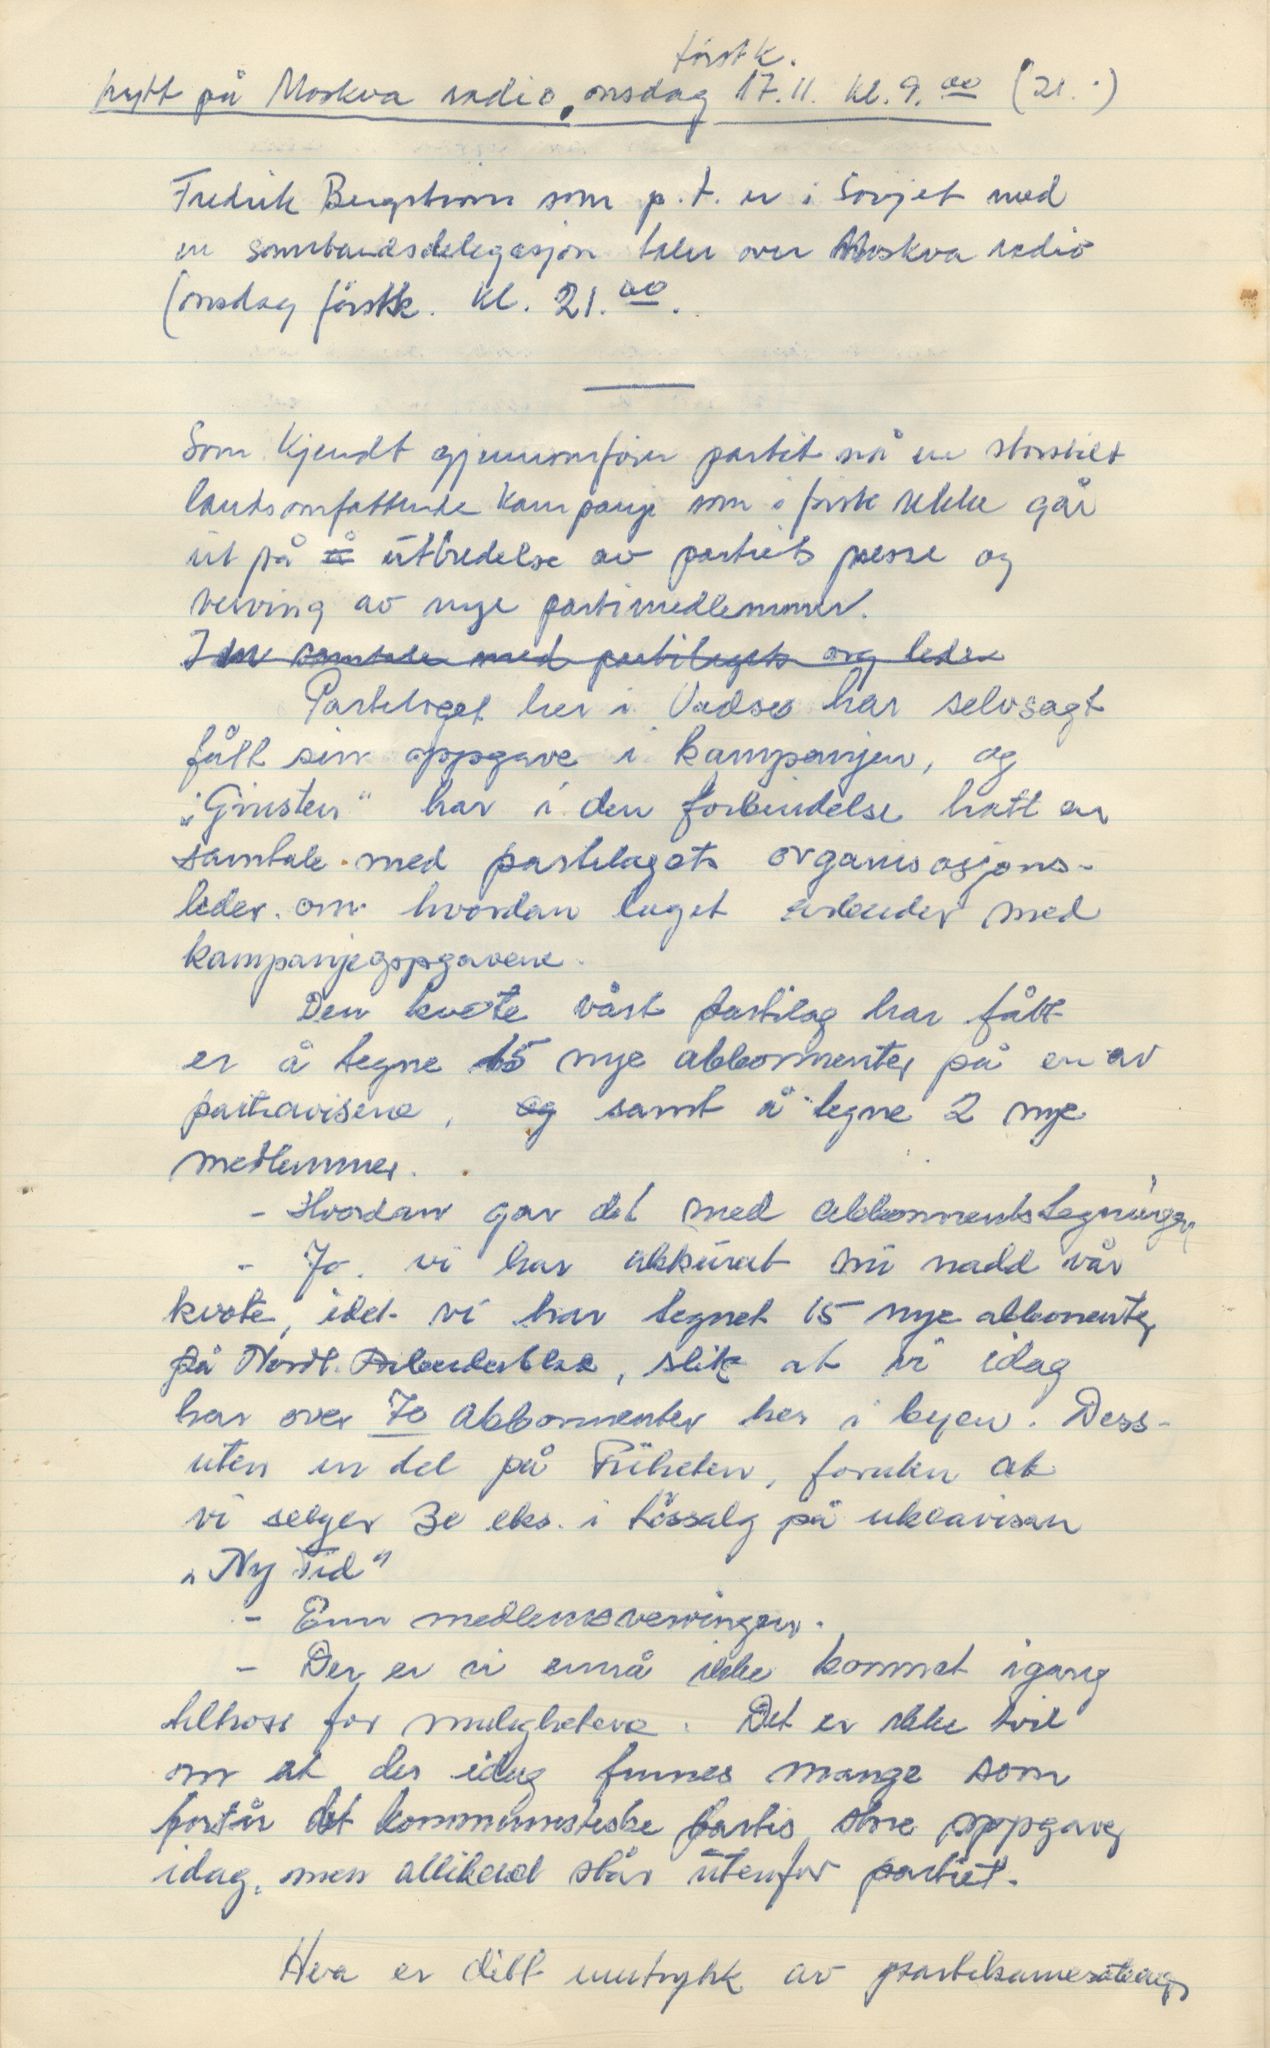 förstk.
Lytt på Moskva radio, onsdag 17.11. kl. 9.00 (21.)
Fredrik Bergstrøm som p.t. er i Sovjet med
en sambandsdelegasjon taler over Moskva radio
(onsdag førstk. kl. 21.00.
Som kjendt gjennomfører partit nå en storstilt
landsomfattende kampanje som i første rekke går
ut på å utbredelse av partiets presse og
verving av nye partimedlemmer.
I en samtale med partilagets org leder
Partilaget her i Vadsø har selvsagt
fått sin oppgave i kampanjen, og
"Gnisten" har i den forbindelse hatt en
samtale med partilagets organisasjons-
leder om hvordan laget arbeider med
kampanjeoppgavene.
Den kvote vårt partilag har fått
er å tegne 15 nye abbonmenter på en av
partiavisene, og samt å tegne 2 nye
medlemmer.
- Hvordan går det med abbonmentstegningen
- Jo, vi har akkurat nu nådd vår
kvote, idet vi har tegnet 15 nye abbonenter
på Nordl. Arbeiderblad, slik at vi idag
har over 70 abbonmenter her i byen. Dess-
uten en del på Friheten, foruten at
vi selger 30 eks. i løssalg på ukeavisan
"Ny Tid"
- Enn medlemsvervingen.
- Der er vi ennå ikke kommet igang
tiltross for mulighetene. Det er ikke tvil
om at der idag finnes mange som
forstår det kommunistiske partis store oppgave
idag, men allikevel står utenfor partiet.
Hva er ditt inntrykk av